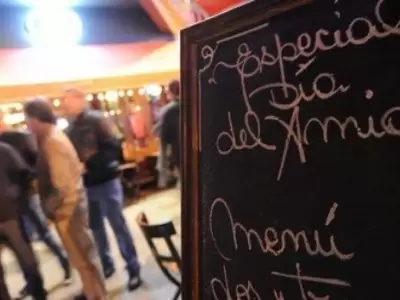 Especial
Día
del Amig
Menú
dos